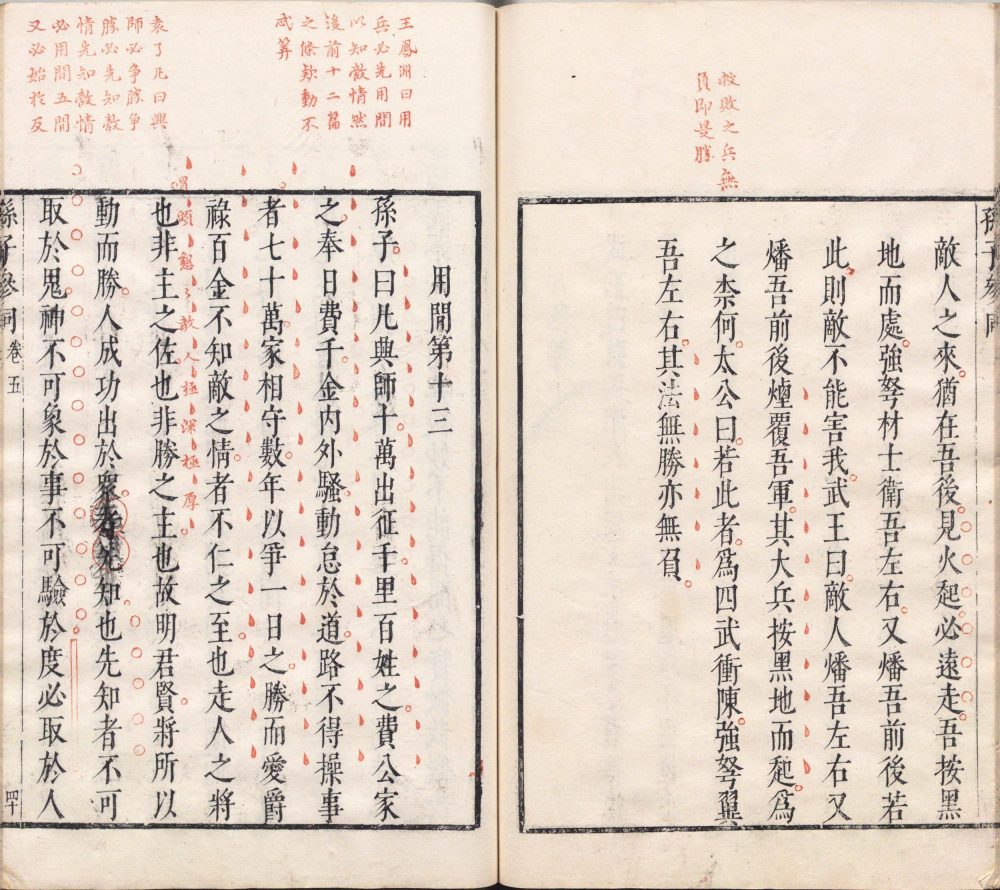 救敗之兵無
負即是勝
孫子參同
敵人之來猶在吾後見火起必遠走吾按黑
地而處强弩材士衛吾左右又燔吾前後若
此則敵不能害我武王曰敵人燔吾左右又
燔吾前後煙覆吾軍其大兵按黑地而起爲
之柰何太公曰若此者爲四武衝陳强弩翼
吾左右其法無勝亦無負
王鳳洲曰用
兵必先用間
以知敵情然
後前十二篇
之條欵動不
忒筭
袁了凡曰興
師必爭勝爭
勝必先知敵
情先知敵情
必用間五間
又必始於反
用間第十三
孫子曰凡興師十萬出征千里百姓之費公家
之奉日費千金內外騷動怠於道路不得操事
者七十萬家相守數年以爭一日之勝而愛爵
祿百金不知敵之情者不仁之至也走人之將
冒頭 數人極深極厚
也非主之佐也非勝之主也故明君賢將所以
動而勝人成功出於衆者先知也先知者不可
取於鬼神不可象於事不可驗於度必取於人
孫子參同 卷五 四十